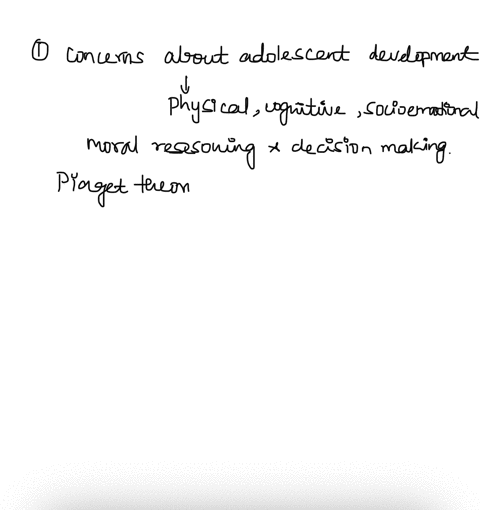 ① Concerns about adolescent development
↓
Physical, cognitive, socioemotional
moral reasoning & decision making.
PYaget theon